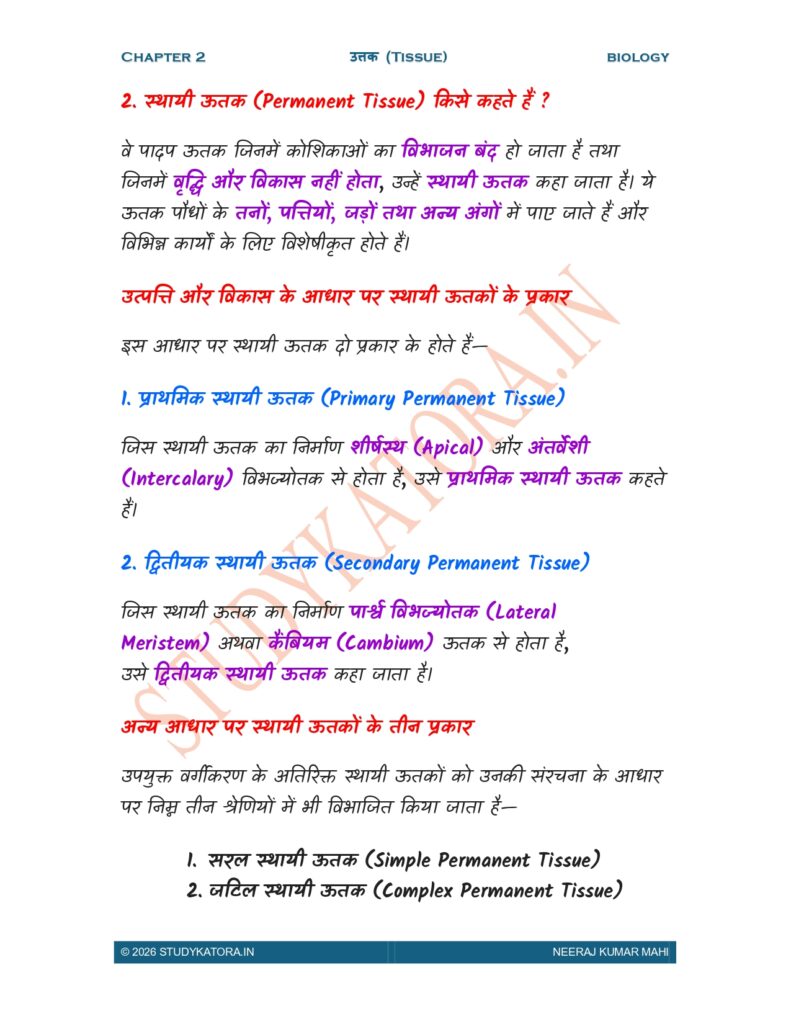 CHAPTER 2 उत्तक (TISSUE) BIOLOGY
2. स्थायी ऊतक (Permanent Tissue) किसे कहते हैं ?
वे पादप ऊतक जिनमें कोशिकाओं का विभाजन बंद हो जाता है तथा
जिनमें वृद्धि और विकास नहीं होता, उन्हें स्थायी ऊतक कहा जाता है। ये
ऊतक पौधों के तनों, पत्तियों, जड़ों तथा अन्य अंगों में पाए जाते हैं और
विभिन्न कार्यों के लिए विशेषीकृत होते हैं।
उत्पत्ति और विकास के आधार पर स्थायी ऊतकों के प्रकार
इस आधार पर स्थायी ऊतक दो प्रकार के होते हैं—
1. प्राथमिक स्थायी ऊतक (Primary Permanent Tissue)
जिस स्थायी ऊतक का निर्माण शीर्षस्थ (Apical) और अंतर्वेशी
(Intercalary) विभज्योतक से होता है, उसे प्राथमिक स्थायी ऊतक कहते
हैं।
2. द्वितीयक स्थायी ऊतक (Secondary Permanent Tissue)
जिस स्थायी ऊतक का निर्माण पार्श्व विभज्योतक (Lateral
Meristem) अथवा कैंबियम (Cambium) ऊतक से होता है,
उसे द्वितीयक स्थायी ऊतक कहा जाता है।
अन्य आधार पर स्थायी ऊतकों के तीन प्रकार
उपयुक्त वर्गीकरण के अतिरिक्त स्थायी ऊतकों को उनकी संरचना के आधार
पर निम्न तीन श्रेणियों में भी विभाजित किया जाता है—
1. सरल स्थायी ऊतक (Simple Permanent Tissue)
2. जटिल स्थायी ऊतक (Complex Permanent Tissue)
STUDYKATORA.IN
© 2026 STUDYKATORA.IN NEERAJ KUMAR MAHI